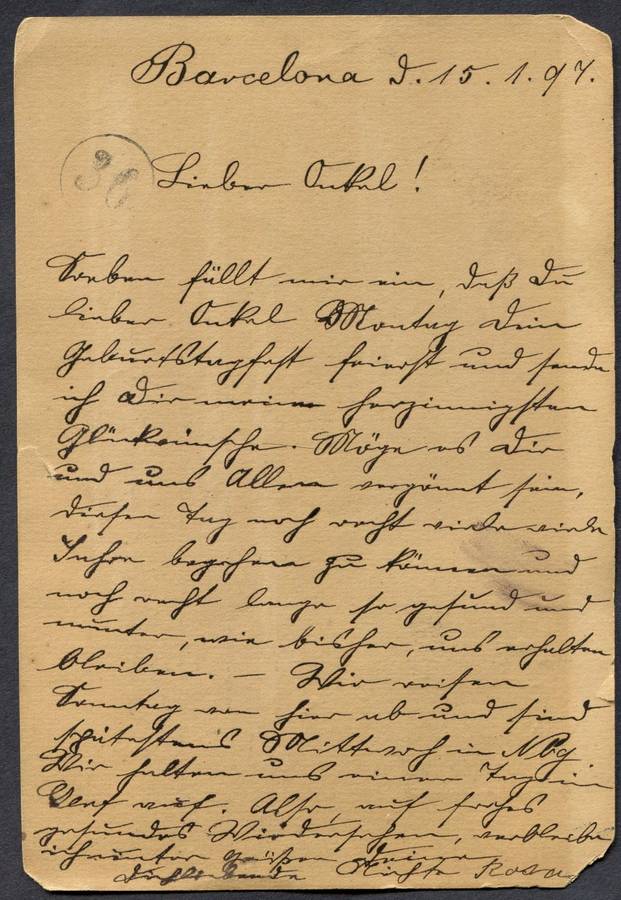 Barcelona d. 15. 1. 97.
36
Lieber Onkel!
Soeben fällt mir ein, daß Du
lieber Onkel Montag Dein
Geburtstagfest feierst und sende
ich Dir meine herzinnigsten
Glückwünsche. Möge es Dir
und uns Allen vergönnt sein,
diesen Tag noch recht viele viele
Jahre begehen zu können und
noch recht lange so gesund und
munter, wie bisher, uns erhalten
bleiben. – Wir reisen
Sonntag von hier ab und sind
spätestens Mittwoch in Nbg
Wir halten uns einen Tag in
Genf auf. Also, auf frohes
gesundes Wiedersehen, verbleibe
ich unter Grüßen Deine
Dichliebende Nichte Rosa